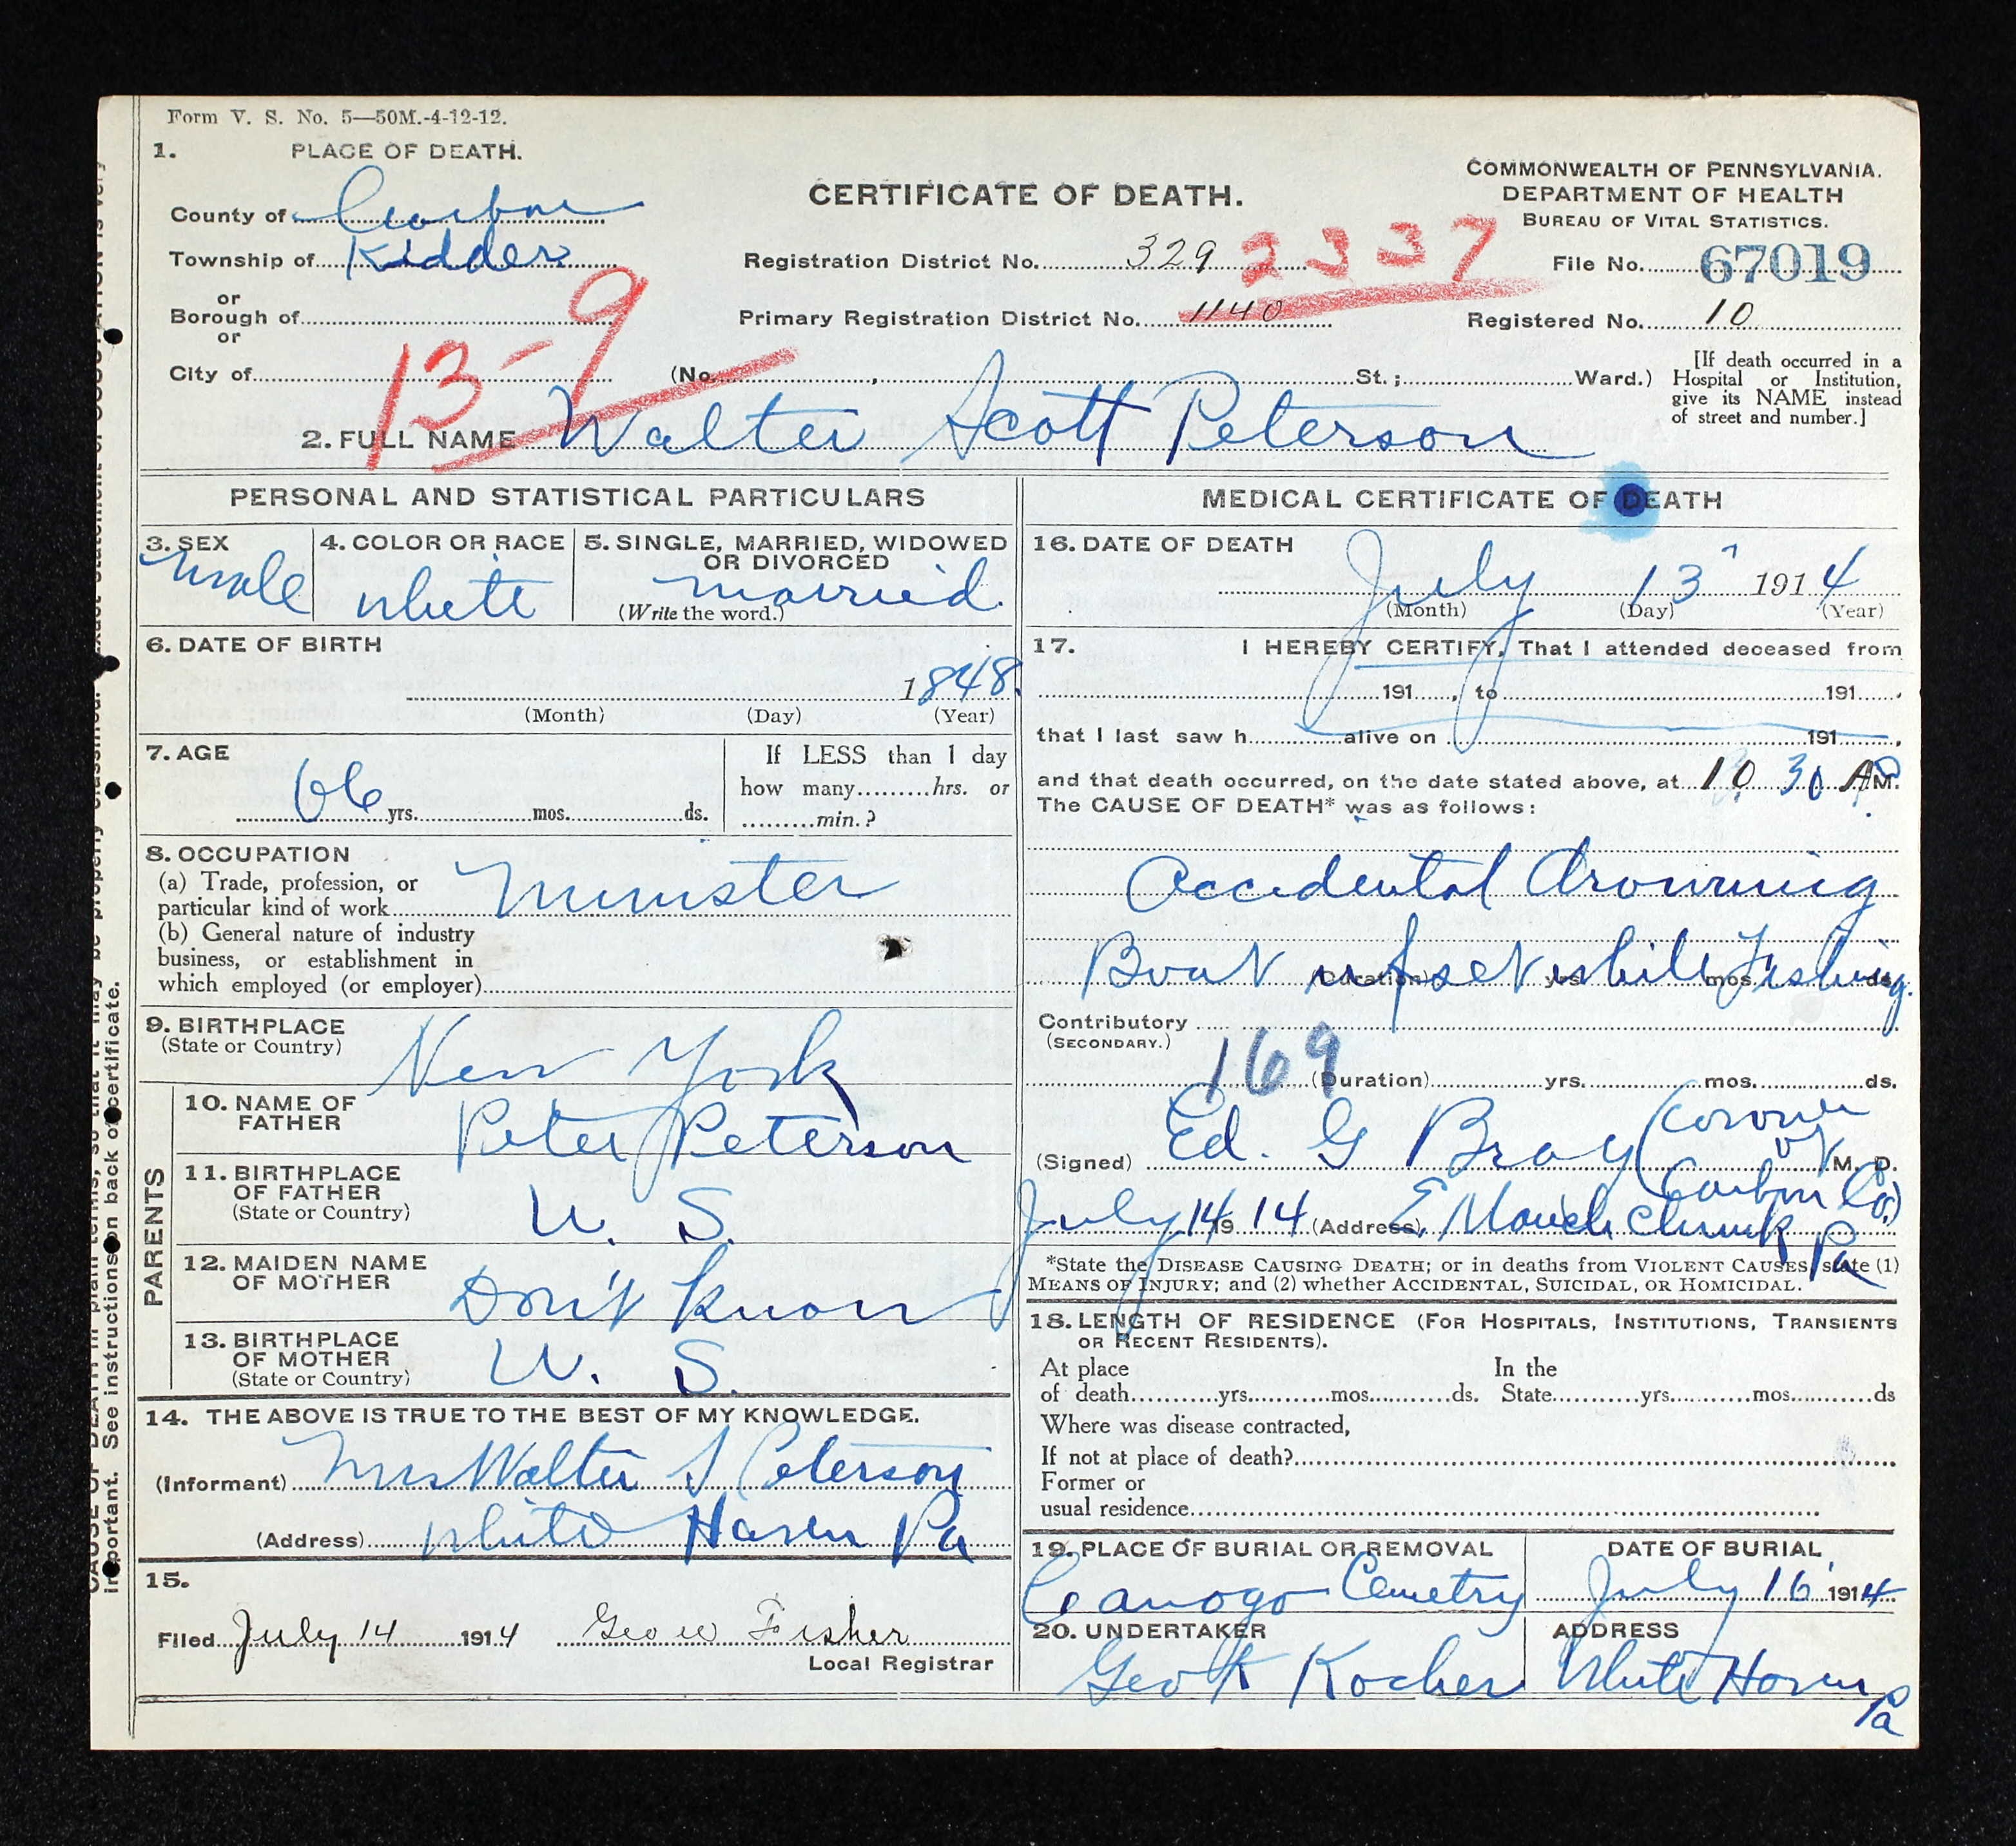 Form V. S. No. 5—50M.-4-12-12.
1. PLACE OF DEATH.
County of Carbon
Township of Kidder
or
Borough of
or
City of
13-9
CERTIFICATE OF DEATH.
Registration District No. 329
2337
Primary Registration District No. 1140
(No. , St.; Ward.)
COMMONWEALTH OF PENNSYLVANIA.
DEPARTMENT OF HEALTH
BUREAU OF VITAL STATISTICS.
File No. 67019
Registered No. 10
[If death occurred in a
Hospital or Institution,
give its NAME instead
of street and number.]
2. FULL NAME Walter Scott Peterson
PERSONAL AND STATISTICAL PARTICULARS
3. SEX
male
4. COLOR OR RACE
white
5. SINGLE, MARRIED, WIDOWED
OR DIVORCED
married
(Write the word.)
6. DATE OF BIRTH
1848.
(Month) (Day) (Year)
7. AGE
66 yrs. mos. ds.
If LESS than 1 day
how many hrs. or
min.?
8. OCCUPATION
(a) Trade, profession, or
particular kind of work Minister
(b) General nature of industry
business, or establishment in
which employed (or employer)
9. BIRTHPLACE
(State or Country)
New York
PARENTS
10. NAME OF
FATHER
Peter Peterson
11. BIRTHPLACE
OF FATHER
(State or Country)
U. S.
12. MAIDEN NAME
OF MOTHER
Don't know
13. BIRTHPLACE
OF MOTHER
(State or Country)
U. S.
14. THE ABOVE IS TRUE TO THE BEST OF MY KNOWLEDGE.
(Informant) Mrs Walter S Peterson
(Address) White Haven Pa
15.
Filed July 14 1914 Geo W Fisher
Local Registrar
MEDICAL CERTIFICATE OF DEATH
16. DATE OF DEATH
July 13 1914
(Month) (Day) (Year)
17. I HEREBY CERTIFY, That I attended deceased from
191 , to 191 ,
that I last saw h alive on 191 ,
and that death occurred, on the date stated above, at 10 30 A M.
The CAUSE OF DEATH* was as follows:
Accidental drowning
Boat upset while Fishing.
(Duration) yrs. mos. ds.
Contributory
(SECONDARY.)
169
(Duration) yrs. mos. ds.
(Signed) Ed. G Bray (Coroner
of M. D.
Carbon Co.)
July 14 1914 (Address) E Mauch Chunk
Pa
*State the DISEASE CAUSING DEATH; or in deaths from VIOLENT CAUSES, state (1)
MEANS OF INJURY; and (2) whether ACCIDENTAL, SUICIDAL, OR HOMICIDAL.
18. LENGTH OF RESIDENCE (FOR HOSPITALS, INSTITUTIONS, TRANSIENTS
OR RECENT RESIDENTS).
At place In the
of death yrs. mos. ds. State yrs. mos. ds
Where was disease contracted,
If not at place of death?
Former or
usual residence
19. PLACE OF BURIAL OR REMOVAL
Cemetry
DATE OF BURIAL
July 16 1914
20. UNDERTAKER
Geo Kocher
ADDRESS
White Haven
Pa
important. See instructions on back of certificate.